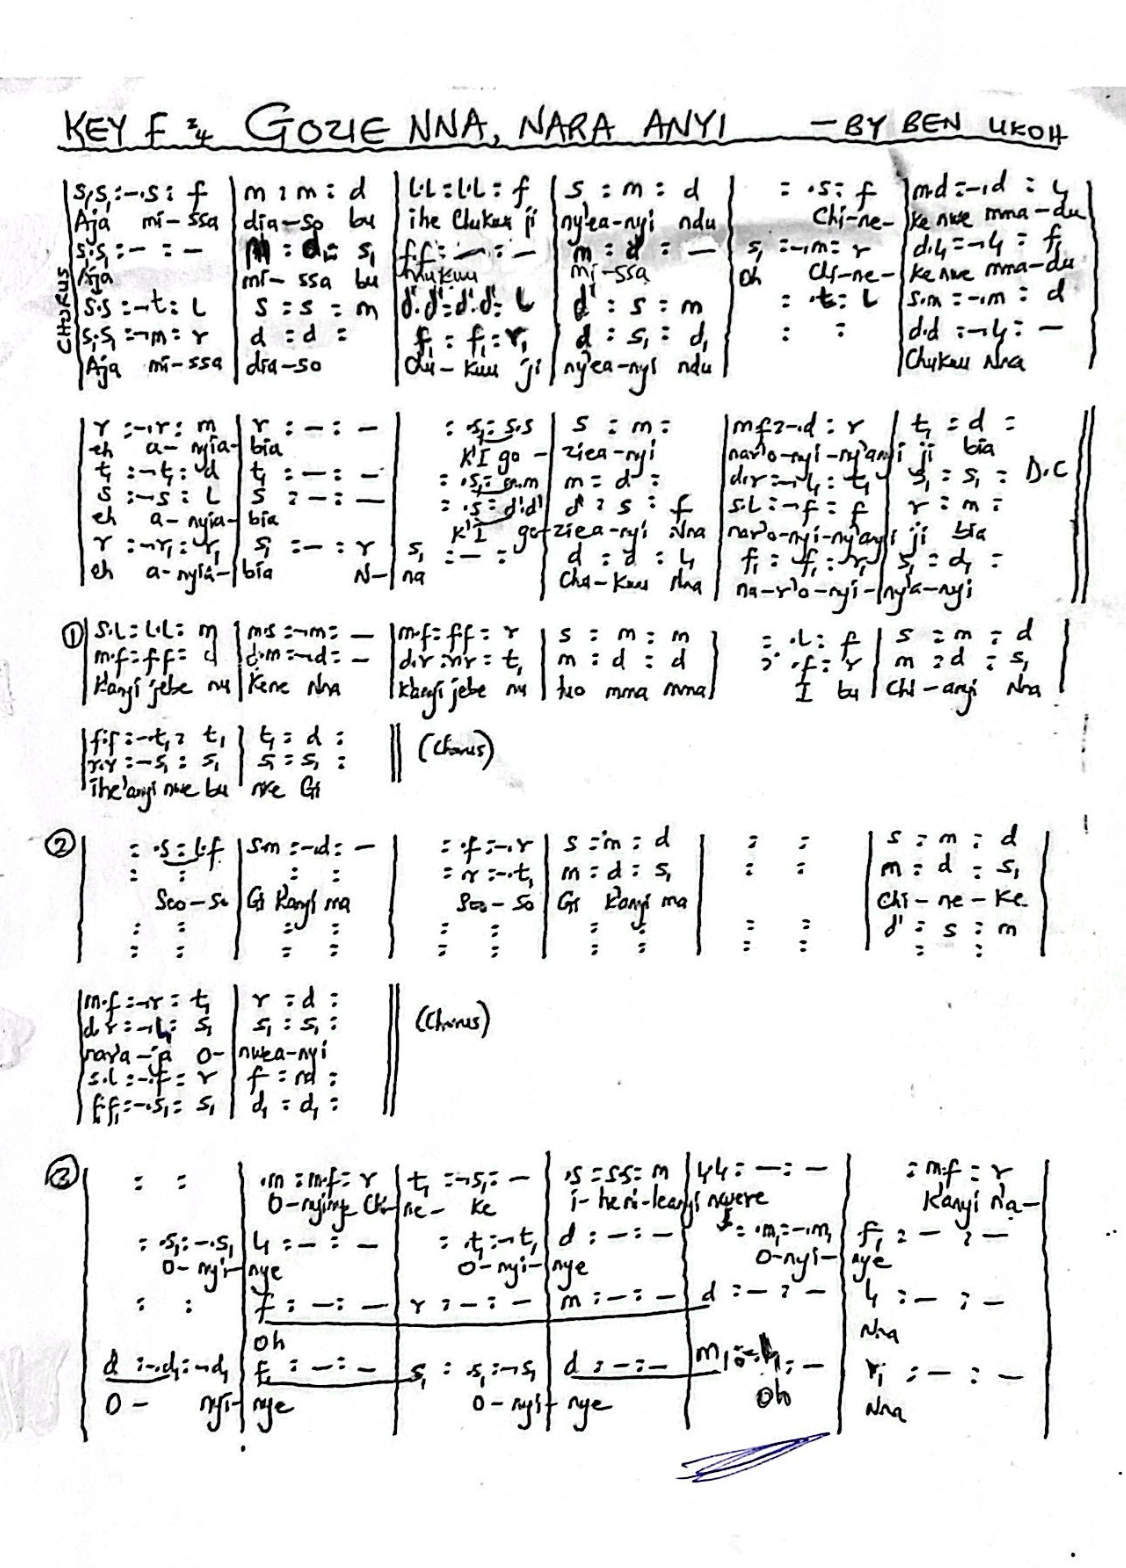 KEY F 3/4 GOZIE NNA, NARA ANYI — BY BEN UKOH
CHORUS
s₁s₁:-.s: f | m : m : d | l.l : l.l : f | s : m : d | : .s : f | m.d :-.d : l₁
Aja mi-ssa | dia-so bu | ihe Chukuu ji | ny'ea-nyi ndu | Chi-ne- | ke nwe mma-du
s₁.s₁ : - : - | m : d : s₁ | f.f : - : - | m : d : - | s₁ :-.m : r | d.l₁ :-.l₁ : f₁
Aja | mi-ssa bu | Chukuu | mi-ssa | oh Chi-ne- | ke nwe mma-du
s.s :-.t : l | s : s : m | d'.d' : d'.d' : l | d' : s : m | : .t : l | s.m :-.m : d
s₁.s₁ :-.m : r | d : d : | f₁ : f₁ : r₁ | d : s₁ : d₁ | : : | d.d :-.l₁ : -
Aja mi-ssa | dia-so | Chu-kuu ji | ny'ea-nyi ndu | | Chukuu Nna
r :-.r : m | r : - : - | : .s₁ : s.s | s : m : | m.f :-.d : r | t₁ : d :
eh a-nyia- | bia | K'I go- | ziea-nyi | nar'o-nyi-ny'anyi | ji bia
t₁ :-.t₁ : d | t₁ : - : - | : .s₁ : m.m | m : d : | d.r :-.l₁ : t₁ | s₁ : s₁ : D.C
s :-.s : l | s : - : - | : .s : d'.d' | d' : s : f | s.l :-.f : f | r : m :
eh a-nyia- | bia | K'I go- | ziea-nyi Nna | nar'o-nyi-ny'anyi | ji bia
r :-.r₁ : r₁ | s₁ : - : r | s₁ : - : | d : d : l₁ | f₁ : f₁ : r₁ | s₁ : d₁ :
eh a-nyia- | bia N- | na | Chu-kuu Nna | na-r'o-nyi- | ny'a-nyi
① s.l : l.l : m | m.s :-.m : - | m.f : f.f : r | s : m : m | : .l : f | s : m : d
m.f : f.f : d | d.m :-.d : - | d.r : r.r : t₁ | m : d : d | : .f : r | m : d : s₁
Kanyi jebe nu | Kene Nna | Kanyi jebe nu | too mma mma | I bu | Chi-anyi Nna
f.f :-.t₁ : t₁ | t₁ : d : || (Chorus)
r.r :-.s₁ : s₁ | s₁ : s₁ :
ihe'anyi nwe bu | nke Gi
② : .s : l.f | s.m :-.d : - | : .f :-.r | s : m : d | : : | s : m : d
: : | : : | : r :-.t₁ | m : d : s₁ | : : | m : d : s₁
Soo-so | Gi Kanyi ma | Soo-so | Gi Kanyi ma | | Chi-ne-Ke
: : | : : | : : | : : | : : | d' : s : m
: : | : : | : : | : : | : : | : :
m.f :-.r : t₁ | r : d : || (Chorus)
d.r :-.l₁ : s₁ | s₁ : s₁ :
nar'a-ja o- | nwea-nyi
s.l :-.f : r | f : m :
f₁.f₁ :-.s₁ : s₁ | d₁ : d₁ :
③ : : | .m : m.f : r | t₁ :-.s₁ : - | .s : s.s : m | l₁.l₁ : - : - | : m.f : r
O-nyinye Chi- | ne-ke | i-he ni-leanyi | nwere | Kanyi na-
: .s₁ :-.s₁ | l₁ : - : - | : .t₁ :-.t₁ | d : - : - | : .m₁ :-.m₁ | f₁ : - : -
O-nyi- | nye | O-nyi- | nye | O-nyi- | nye
: : | f : - : - | r : - : - | m : - : - | d : - : - | l₁ : - : -
Oh | Nna
d :-.d₁ :-.d₁ | f₁ : - : - | s₁ : .s₁ :-.s₁ | d : - : - | m₁ : : - | r₁ : - : -
O- nyi- | nye | O-nyi- | nye | Oh | Nna